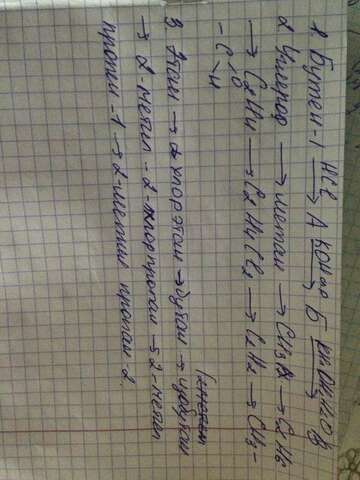 1. Бутен-1 HCl → А КОН сп → Б KMnO4, H2O → В
2. Углерод → метан → CH3Cl → C2H6
→ C2H4 → C2H4Cl2 → C2H2 → CH3-
- C O H
3. Этан → хлорэтан → бутан → изобутан
→ 2-метил-2-хлорпропан → 2-метил
пропен-1 → 2-метил пропан-2.